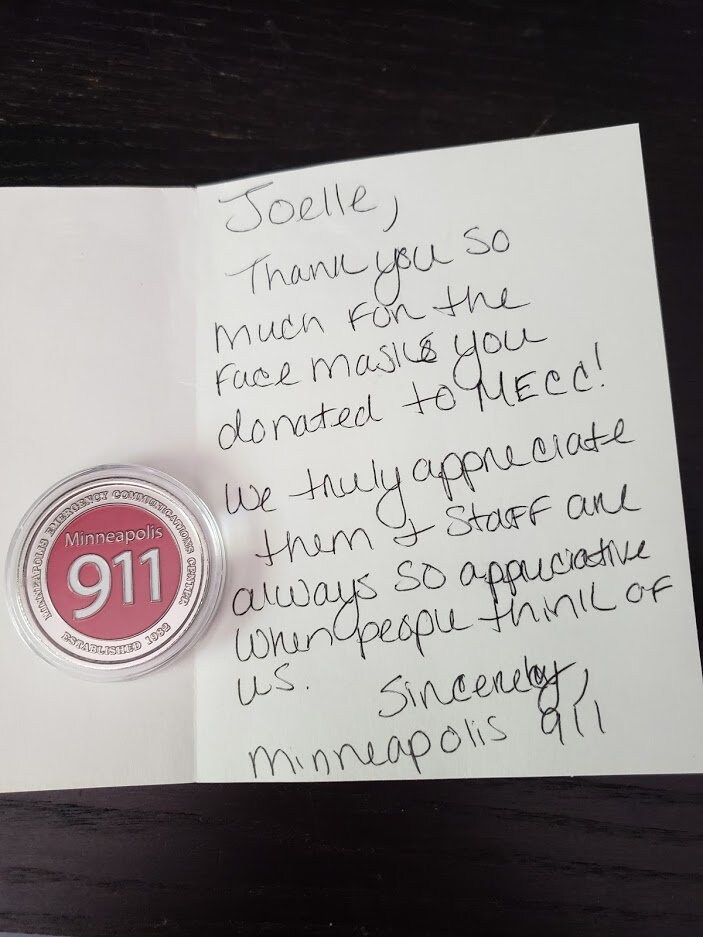 Joelle,
Thank you so
much for the
face masks you
donated to MECC!
We truly appreciate
them & staff are
always so appreciative
when people think of
us.
Sincerely,
Minneapolis 911
MINNEAPOLIS EMERGENCY COMMUNICATIONS CENTER
Minneapolis
911